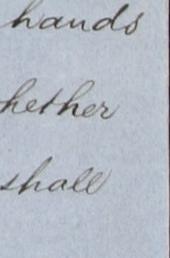 hands
hether
shall